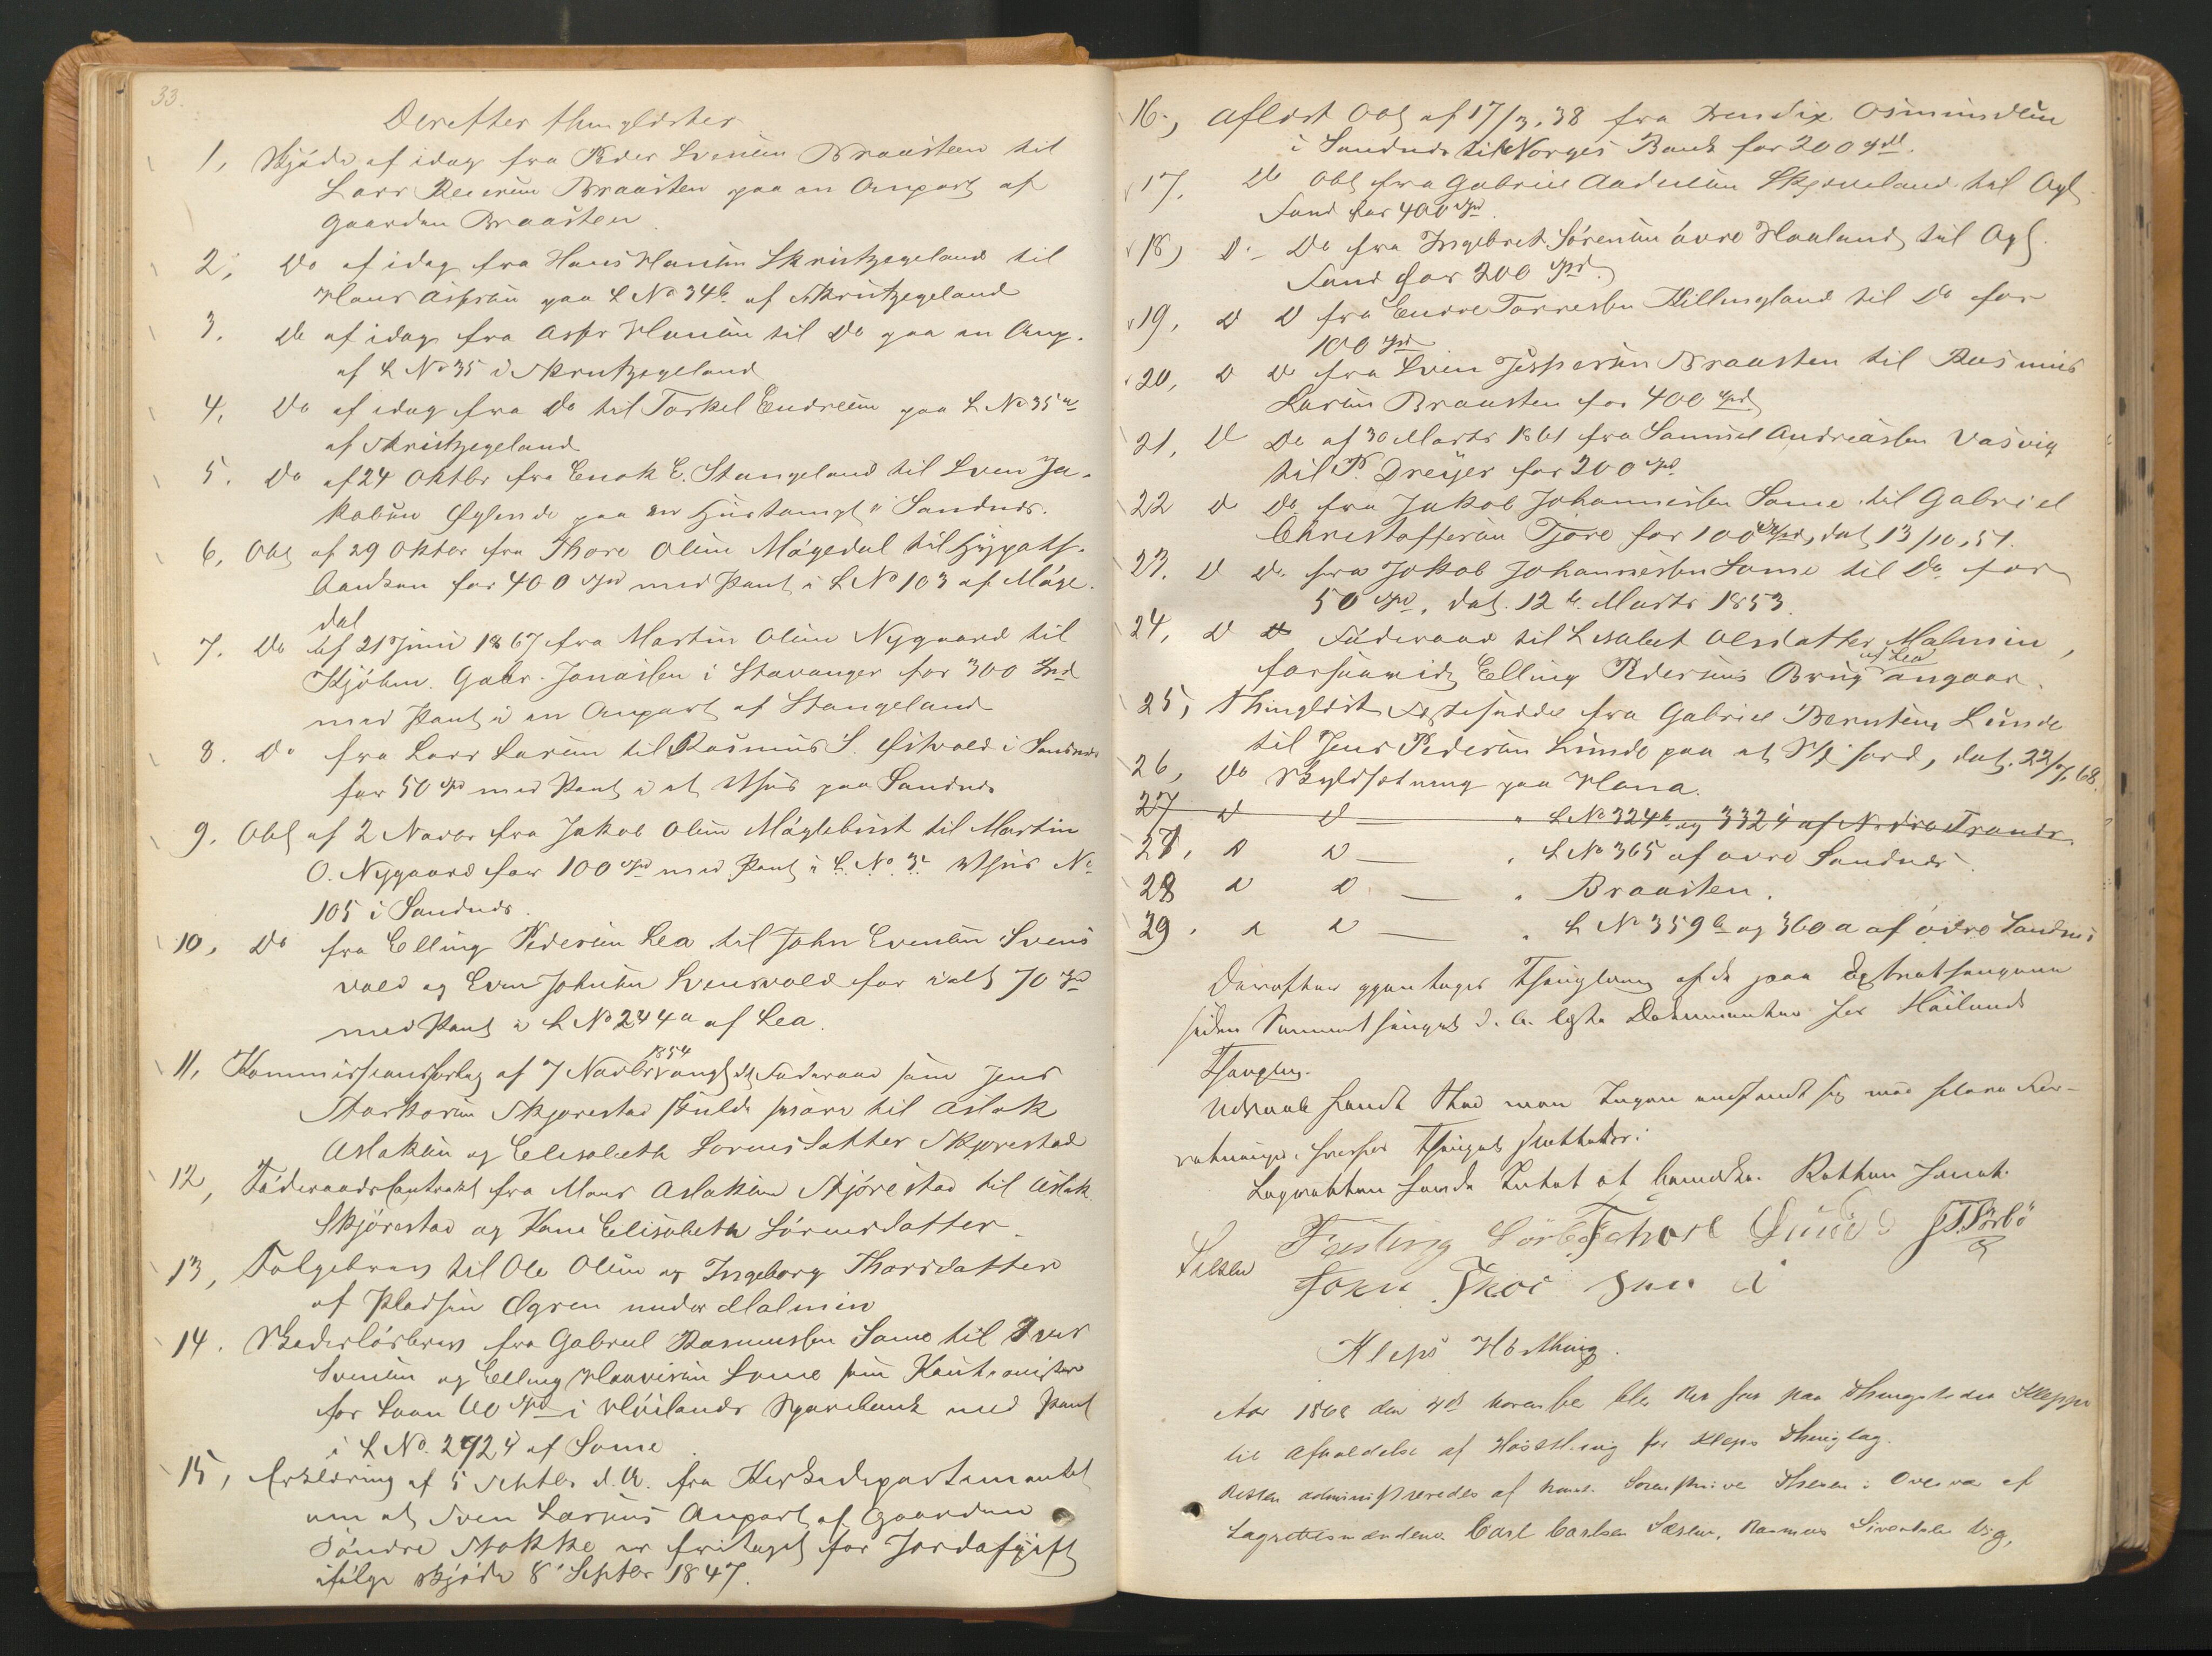 33.
Derefter thinglæstes
1, Skjøde af idag fra Peder Svensen Braasten til
Lars Braasten paa en Anpart af
Gaarden Braasten
2, Do af idag fra Hans Hansen Skrutzegeland til
Hans Aspsen paa L No 34b af Skrutzegeland
3. Do af idag fra Hansen til Do paa en Anp.
af L No 35 i Skrutzegeland
4, Do af idag fra Do til Torkel Endresen paa L No 35
af Skrutzegeland
5. Do af 24 Oktbr fra Enok E. Stangeland til Sven Ja-
kobsen paa en Hustompt i Sandnæs.
6, Obl af 29 Oktbr fra Thore Olsen Møgedal til Hypoth.
banken for 400 Spd med Pant i L No 103 af Møge-
dal
7. Do af 21 Juni 1867 fra Martin Olsen Nygaard til
Kjøbm. Gabr. Jonassen i Stavanger for 300 Spd
med Pant i en Anpart af Stangeland
8. Do fra Lars Larsen til Rasmus S. i Sandnæs
for 50 Spd med Pant i et Huus paa Sandnæs
9. Obl af 2 Novbr fra Jakob Olsen Møglebust til Martin
O. Nygaard for 100 Spd med Pant i L. No. Huus No
105 i Sandnæs
10, Do fra Elling Pedersen Lea til John Evensen Svens
vold og Even Johnsen Svensvold for ialt 70 Spd
med Pant i L No 244a af Lea.
11, Kommissionsforlig af 7 Novbr 1854 ang Føderaad som Jens
Skjørestad skulde svare til Aslak
Aslaksen og Elisabeth Sørensdatter Skjørestad
12, Føderaadscontrakt fra Mons Aslaksen Skjørestad til Aslak
Skjørestad og Kone Elisabeth Sørensdatter
13, Følgebrev til Ole Olsen og Ingeborg Thorsdatter
af Pladsen Øgren under Malmin
14. Skadesløsbrev fra Gabriel Rasmussen Some til Iver
Svensen og Elling Some som Kautionister
for Laan 60 Spd i Høilands Sparebank med Pant
i L No. 292 af Some
15, Erklæring af 5 Septbr d. A. fra Kirkedepartementet
om at Sven Larsens Anpart af Gaarden
Søndre Stokke er fritaget for Jordafgift
ifølge Skjøde 8 Septbr 1847.
16., Aflæst Obl af 17/3. 38 fra Bendix Osmundsen
i Sandnæs til Norges Bank for 200 Spd.
17. Do Obl fra Gabriel Andersen Skjæveland til Opl
Fond for 400 Spd.
18) D. Do fra Ingebret Sørensen øvre Haaland til Opl.
Fond for 200 Spd.
19, D D fra Endre Torressen Killingland til Do for
100 Spd
20, D D fra Sven Jespersen Braasten til Rasmus
Larsen Braasten for 400 Spd
21, D Do af 30 Marts 1861 fra Samuel Andreassen Vasvig
til P. Dreyer for 200 Spd
22 D Do fra Jakob Johannessen Some til Gabriel
Christoffersen Tjore for 100 Spd, dat 13/10, 51.
23. D Do fra Jakob Johannessen Some til Do for
50 Spd, dat. 12te Marts 1853.
24, D D Føderaad til Lisabet Olesdatter Malmin,
forsaavidt Elling Pedersens Brug af Lea angaar.
25, Thinglæst Fæsteseddel fra Gabriel Berntsen Lunde
til Jens Pedersen Lunde paa et St. Jord, dat. 22/ 68.
26, Do Skyldsætning paa Hana.
27 D D — " L No 324b og 332 af Nedre Tronæs
27. D D — " L No 365 af øvre Sandnæs
28 D D — " Braasten.
29. D D — " L No 359b og 360a af øvre Sandnæs
Derefter gjentoges Thinglæsning af de paa Extrathingene
siden Sommerthinget d. A. læste Dokumenter for Høilands
Thinglag.
Udraab skeede den men Ingen indfandt sig med flere For-
retninger, hvorfor Thinget sluttedes.
Lagretten havde Intet at bemærke. Retten hævet.
Tjore Lunde J. T. Sørbø
John
Kleps Høstthing.
Aar 1868 den 4de November blev Ret sat paa Thingstedet Kleppe
til Afholdelse af Høstthing for Kleps Thinglag.
Retten administreredes af const. Sorenskriver i Overvær af
Lagrettesmændene Carl Carlsen Rasmus Sivertsen Vig,